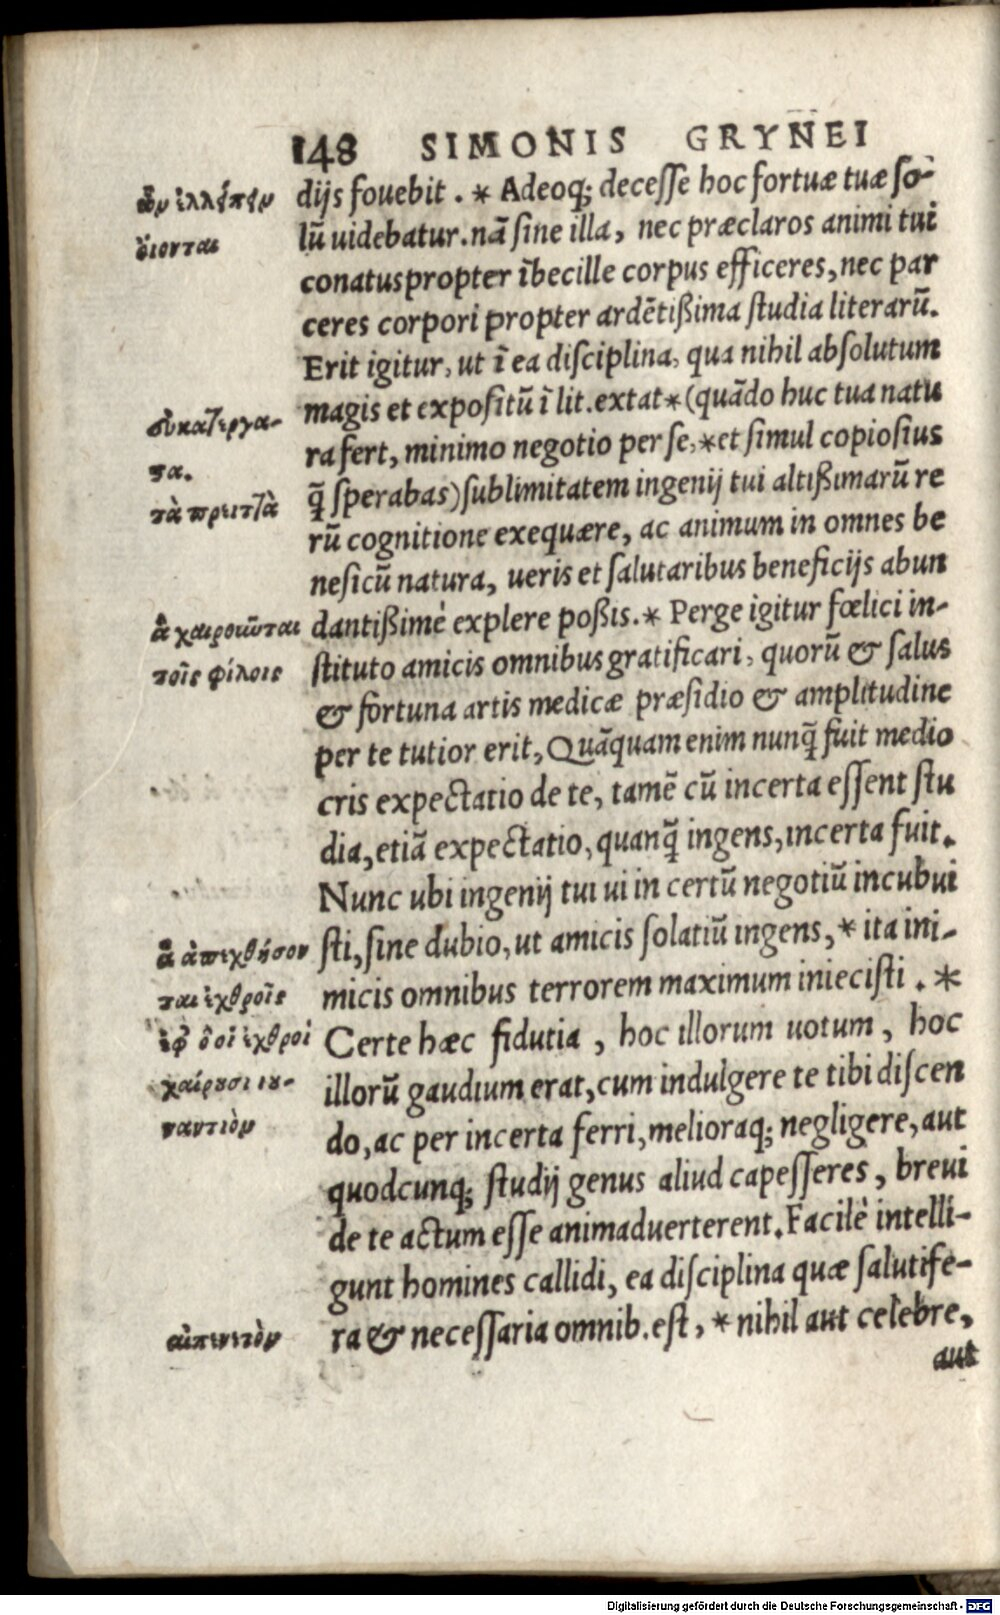 148 SIMONIS GRYNEI
dijs fouebit . * Adeoq; decesse hoc fortuæ tuæ so-
lũ uidebatur. nã sine illa, nec præclaros animi tui
conatus propter ĩbecille corpus efficeres, nec par
ceres corpori propter ardẽtißima studia literarũ.
Erit igitur, ut ĩ ea disciplina, qua nihil absolutum
magis et expositũ ĩ lit. extat * (quãdo huc tua natu
ra fert, minimo negotio per se, * et simul copiosius
q̃ sperabas) sublimitatem ingenij tui altißimarũ re
rũ cognitione exequære, ac animum in omnes be
neficũ natura, ueris et salutaribus beneficijs abun
dantißimè explere poßis. * Perge igitur fœlici in-
stituto amicis omnibus gratificari, quorũ & salus
& fortuna artis medicæ præsidio & amplitudine
per te tutior erit, Quãquam enim nunq̃ fuit medio
cris expectatio de te, tamẽ cũ incerta essent stu
dia, etiã expectatio, quanq̃ ingens, incerta fuit.
Nunc ubi ingenij tui ui in certũ negotiũ incubui
sti, sine dubio, ut amicis solatiũ ingens, * ita ini-
micis omnibus terrorem maximum iniecisti . *
Certe hæc fidutia , hoc illorum uotum , hoc
illorũ gaudium erat, cum indulgere te tibi discen
do, ac per incerta ferri, melioraq; negligere, aut
quodcunq; studij genus aliud capesseres , breui
de te actum esse animaduerterent. Facilè intelli-
gunt homines callidi, ea disciplina quæ salutife-
ra & necessaria omnib. est, * nihil aut celebre,
aut
ὄιονται
τα.
ἃ χαιροιῶται
τοῖς φίλοις
ἃ ἀπεχθήσον
ται ἐχθροῖς
ἐφ᾽ ὃ οἱ ἐχθροὶ
ναντιὸν
Digitalisierung gefördert durch die Deutsche Forschungsgemeinschaft - DFG